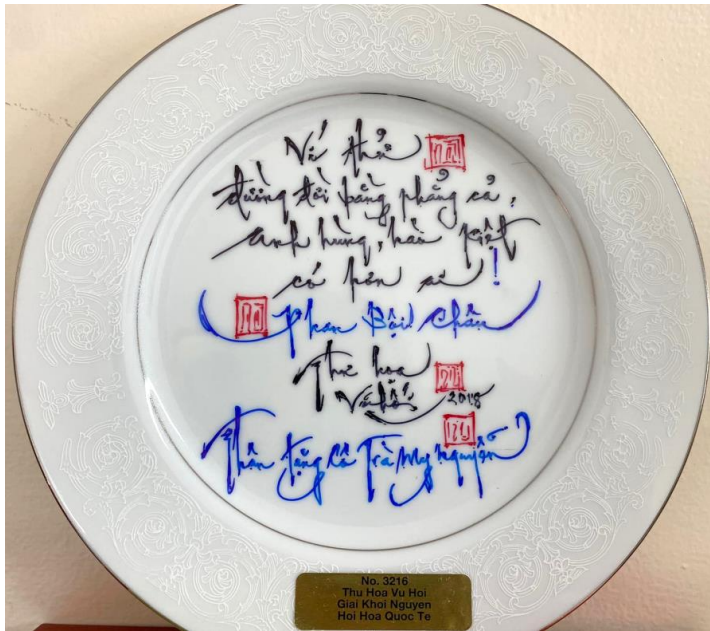 Ví thử
đường đời bằng phẳng cả,
Anh hùng, hào kiệt
có hơn ai!
Phan Bội Châu
Thư họa
Vũ Hối 2018
Thân tặng Cô Trà My Nguyễn
No. 3216
Thu Hoa Vu Hoi
Giai Khoi Nguyen
Hoi Hoa Quoc Te